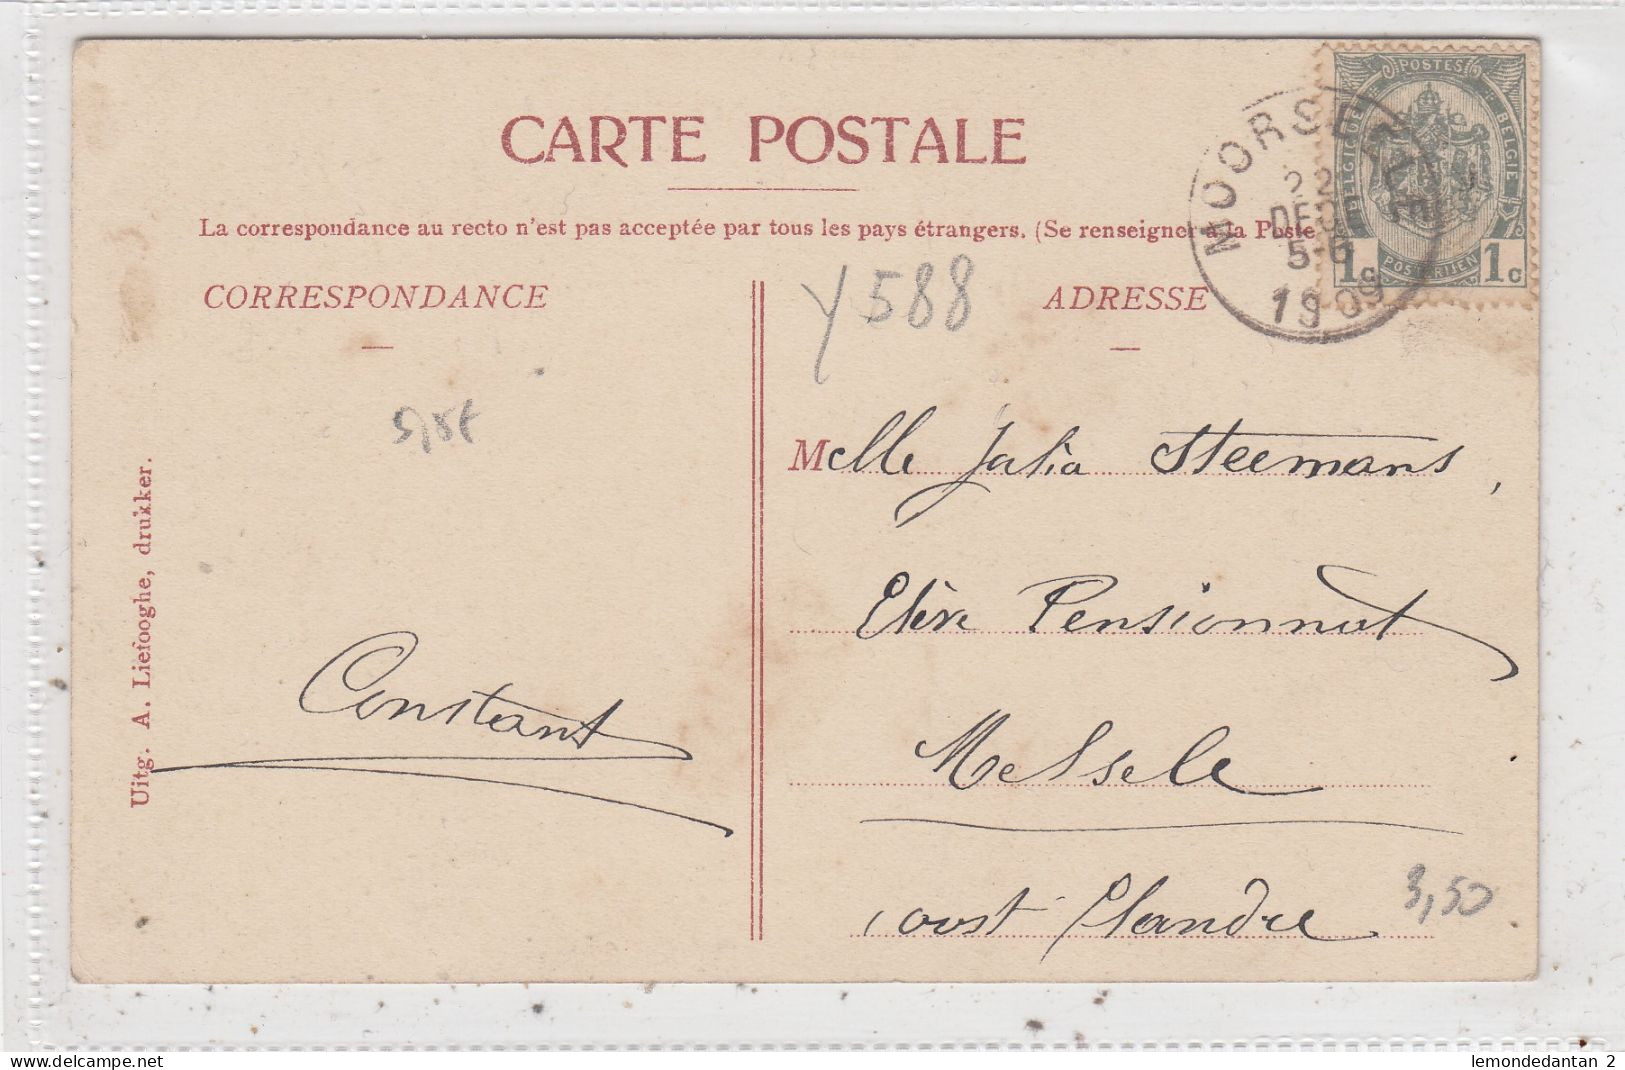 CARTE POSTALE
La correspondance au recto n'est pas acceptée par tous les pays étrangers. (Se renseigner à la Poste
CORRESPONDANCE
ADRESSE
POSTES
BELGIQUE
BELGIE
POSTERIJEN
1c 1c
MOORSE
22
DEC
5-6
1909
Y588
Melle Julia Steemans,
Elève Pensionnat
Melsele
oost Flandre
3,50
Constant
Uitg. A. Liefooghe, drukker.
lemondedantan 2